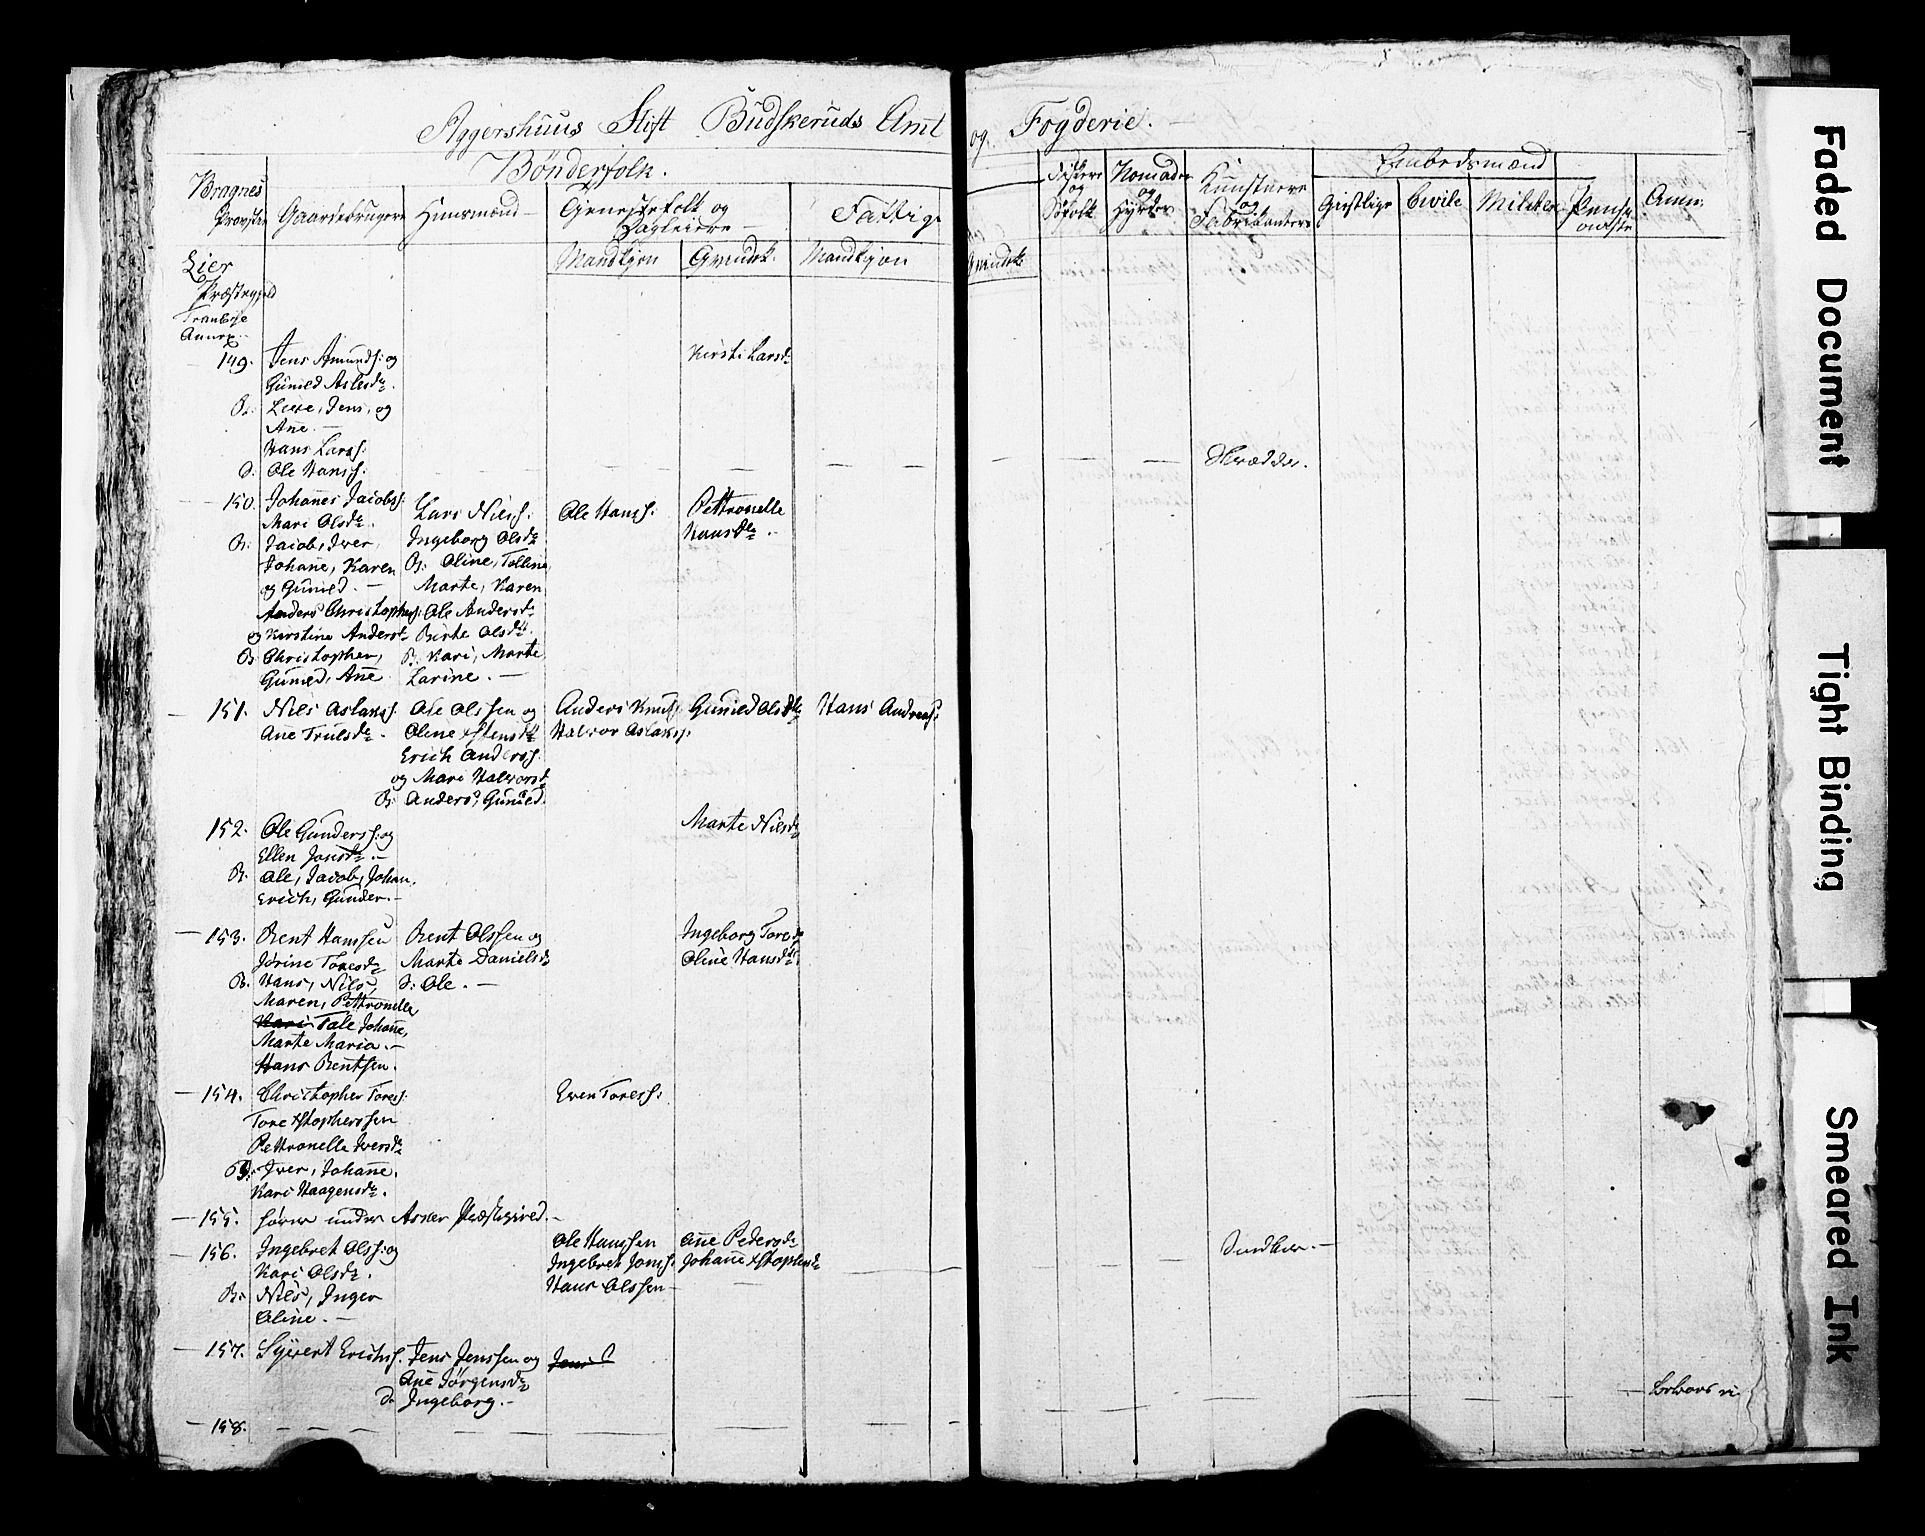 Aggershuus Stift Budskeruds Amt og Fogderie.
Bønderfolk.
Embedsmænd
Bragnes
Provstie
Gaardebrugere
Huusmænd
Tjenestefolk og
Dagleiere
Fattige
Fiskere
og
Nomader
og
Hyrder
Kunstnere
og
Fabrikantere
Geistlige
Civile
Militær
Anm:
Mandkjøn
Qvindek.
Mandkjøn
Qvindek
Lier
Præstegjeld
Tranbye
Annex
149. Jens Amunds: og
Gunild Aslesdr.
Kirsti Larsdr
B: Jens, og
Ane.
Hans Larss:
d: Ole Hanss:
Skrædder.
150. Johanes Jacobs:
Mari Olsdr.
B: Jacob, Iver
Johane, Karen
og Gunild.
Anders Christophers:
og Kirstine Andersd
B: Christopher,
Gunild, Ane
Lars Niels:
Ingeborg Olsdr
B: Oline,
Marte, Karen
Ole Anders
Birte Olsdr.
B: Kari, Marte
Larine.
Ole Hanss:
Pettronelle
Hansdr.
151. Nils Aslaks:
Ane Trulsdr.
Ole Olssen og
Erich Anderss:
og Mari Halvorsd
B: Anders, Gunild.
Anders Knuts
Halvor Aslaks:
Gunild Olsdr
Hans Andreas:
152. Ole Gunderss: og
Ellen Jonsdr.
B: Ole, Jacob, Johan,
Erich, Gunder.
Marte Nilsdr
153. Bent Hanssen
Jørine Toresdr
B. Hans, Nils,
Maren, Pettronelle
Kari Tale Johane,
Marte Maria.
Hans Bentsen.
Bent Olssen og
Marte Danielsdr
d: Ole.
Ingeborg Toredr
Oline Hansdr.
154. Christopher Tores:
Tore Xstopherssen
Pettronelle Iversdr
B: Iver, Johane.
Kari Haagensdr.
Even Toress:
155. hører under Asker Præstegield.
156. Ingebret Olss: og
Kari Olsdr.
B: Nils, Inger
Oline.
Ole Hanssen
Ingebret Jonss:
Hans Olssen
Ane Pedersdr
Johane Xstophersdr
157. Syvert Erichs. Jens Jenssen og
Ane Jørgensdr
d. Ingeborg.
Jens
158.
Faded Document
Tight Binding
Smeared Ink